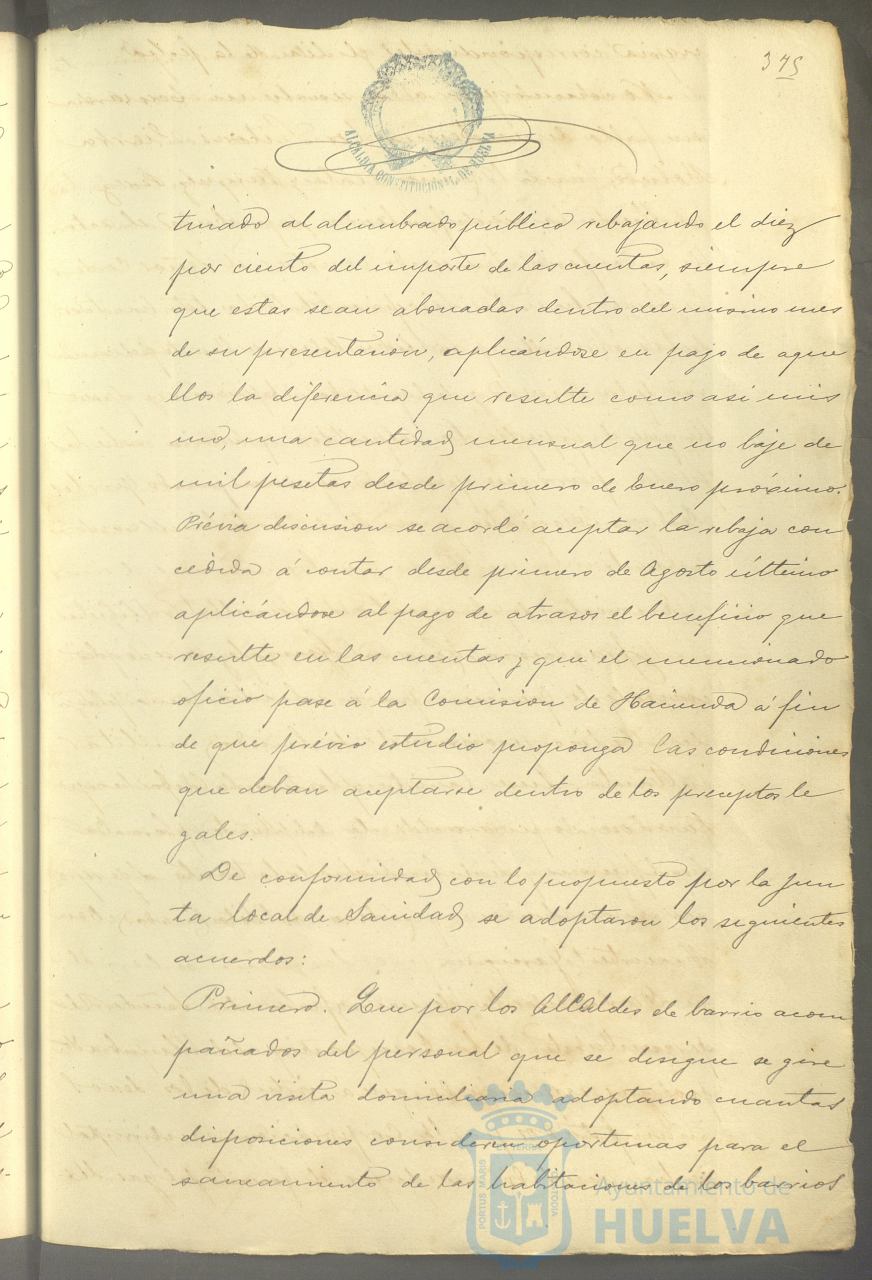 375
ALCALDIA CONSTITUCIONAL DE HUELVA
tinado al alumbrado público rebajando el diez
por ciento del importe de las cuentas, siempre
que estas sean abonadas dentro del mismo mes
de su presentacion, aplicándose en pago de aque
llos la diferencia que resulte como asi mis
mo, una cantidad mensual que no baje de
mil pesetas desde primero de Enero próximo.
Prévia discusion se acordó aceptar la rebaja con
cedida á contar desde primero de Agosto último
aplicándose al pago de atrasos el beneficio que
resulte en las cuentas y que el mencionado
oficio pase á la Comision de Hacienda á fin
de que prévio estudio proponga las condiciones
que deban aceptarse dentro de los preceptos le
gales.
De conformidad con lo propuesto por la Jun
ta local de Sanidad se adoptaron los siguientes
acuerdos:
Primero. Que por los Alcaldes de barrio acom
pañados del personal que se designe se gire
una visita domiciliaria adoptando cuantas
disposiciones consideren oportunas para el
saneamiento de las habitaciones de los barrios
PORTUS MARIS ET TERRAE CUSTODIA
Ayuntamiento de
HUELVA